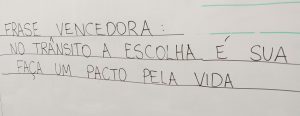 FRASE VENCEDORA:
NO TRÂNSITO A ESCOLHA É SUA
FAÇA UM PACTO PELA VIDA